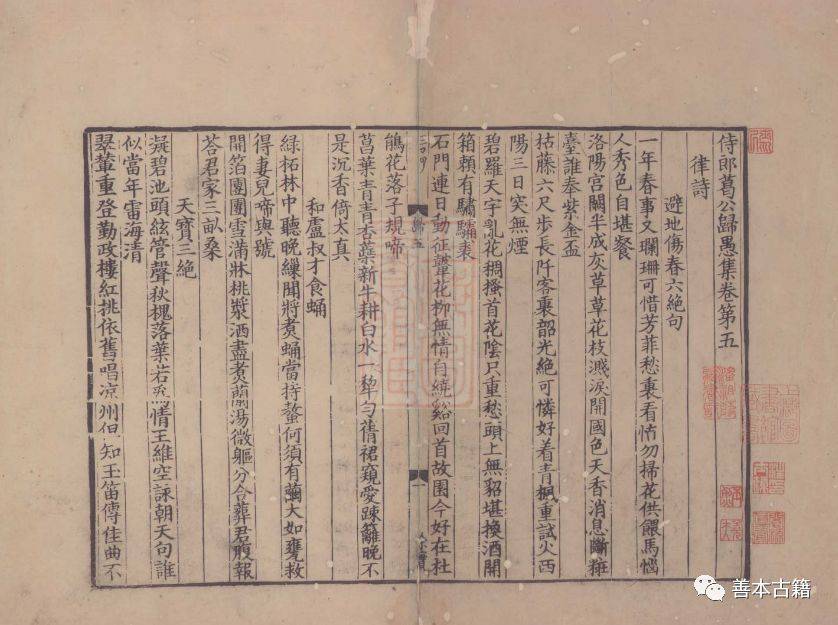 侍郎葛公歸愚集卷第五
律詩
避地傷春六絕句
一年春事又瓓珊可惜芳菲愁裏看怕勿掃花供餵馬惱
人秀色自堪餐
洛陽宮闕半成灰草草花枝濺淚開國色天香消息斷粧
臺誰奉紫金盃
枯藤六尺步長阡客裏韶光絕可憐好着青楓重試火西
陽三日突無煙
碧羅天宇亂花稠搔首花陰只重愁頭上無貂堪換酒開
箱賴有驌驦裘
石門連日動征鼙花柳無情自繞谿回首故園今好在杜
歸五
一
鵑花落子規啼
菖葉青青杏蘂新牛耕白水一犂勻蒨裙窺愛踈籬晚不
是沉香倚太真
和盧叔才食蛹
綠柘林中聽晚繰聞將煮蛹當持螯何須有繭大如甕救
得妻兒啼與號
開箔團團雪滿牀桃漿洒盡煮蘭湯微軀分合葬君腹報
荅君家三畝桑
天寶三絕
凝碧池頭絃管聲秋槐落葉若為情王維空詠朝天句誰
似當年雷海清
翠輦重登勤政樓紅桃依舊唱凉州但知玉笛傳佳曲不
善本古籍